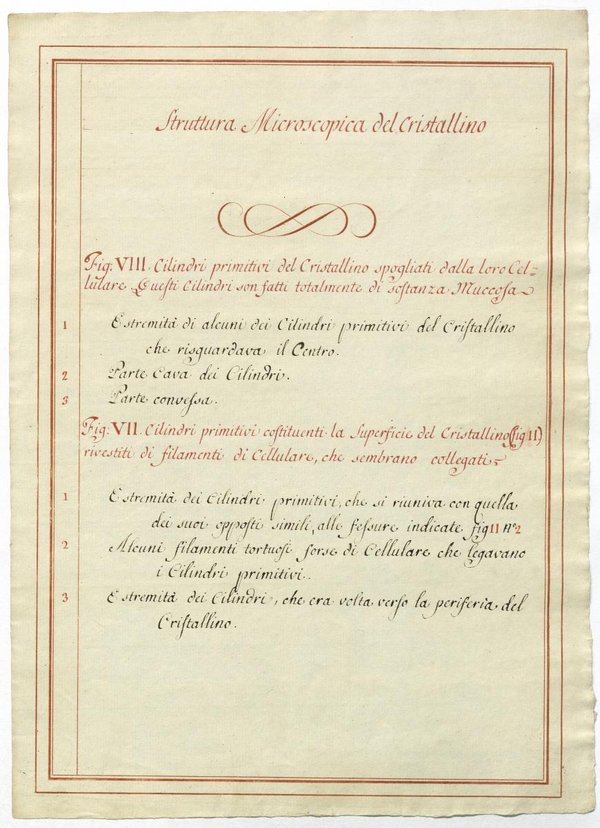 Struttura Microscopica del Cristallino
Fig: VIII. Cilindri primitivi del Cristallino spogliati dalla loro Cel=
lulare Questi Cilindri son fatti totalmente di sostanza Muccosa
1 Estremità di alcuni dei Cilindri primitivi del Cristallino
che risguardava il Centro.
2 Parte Cava dei Cilindri.
3 Parte convessa.
Fig: VII. Cilindri primitivi costituenti la Superficie del Cristallino (fig II)
rivestiti di filamenti di Cellulare, che sembrano collegati
1 Estremità dei Cilindri primitivi, che si riuniva con quella
dei suoi opposti simili, alle fessure indicate fig II N° 2
2 Alcuni filamenti tortuosi forse di Cellulare che legavano
i Cilindri primitivi.
3 Estremità dei Cilindri, che era volta verso la periferia del
Cristallino.